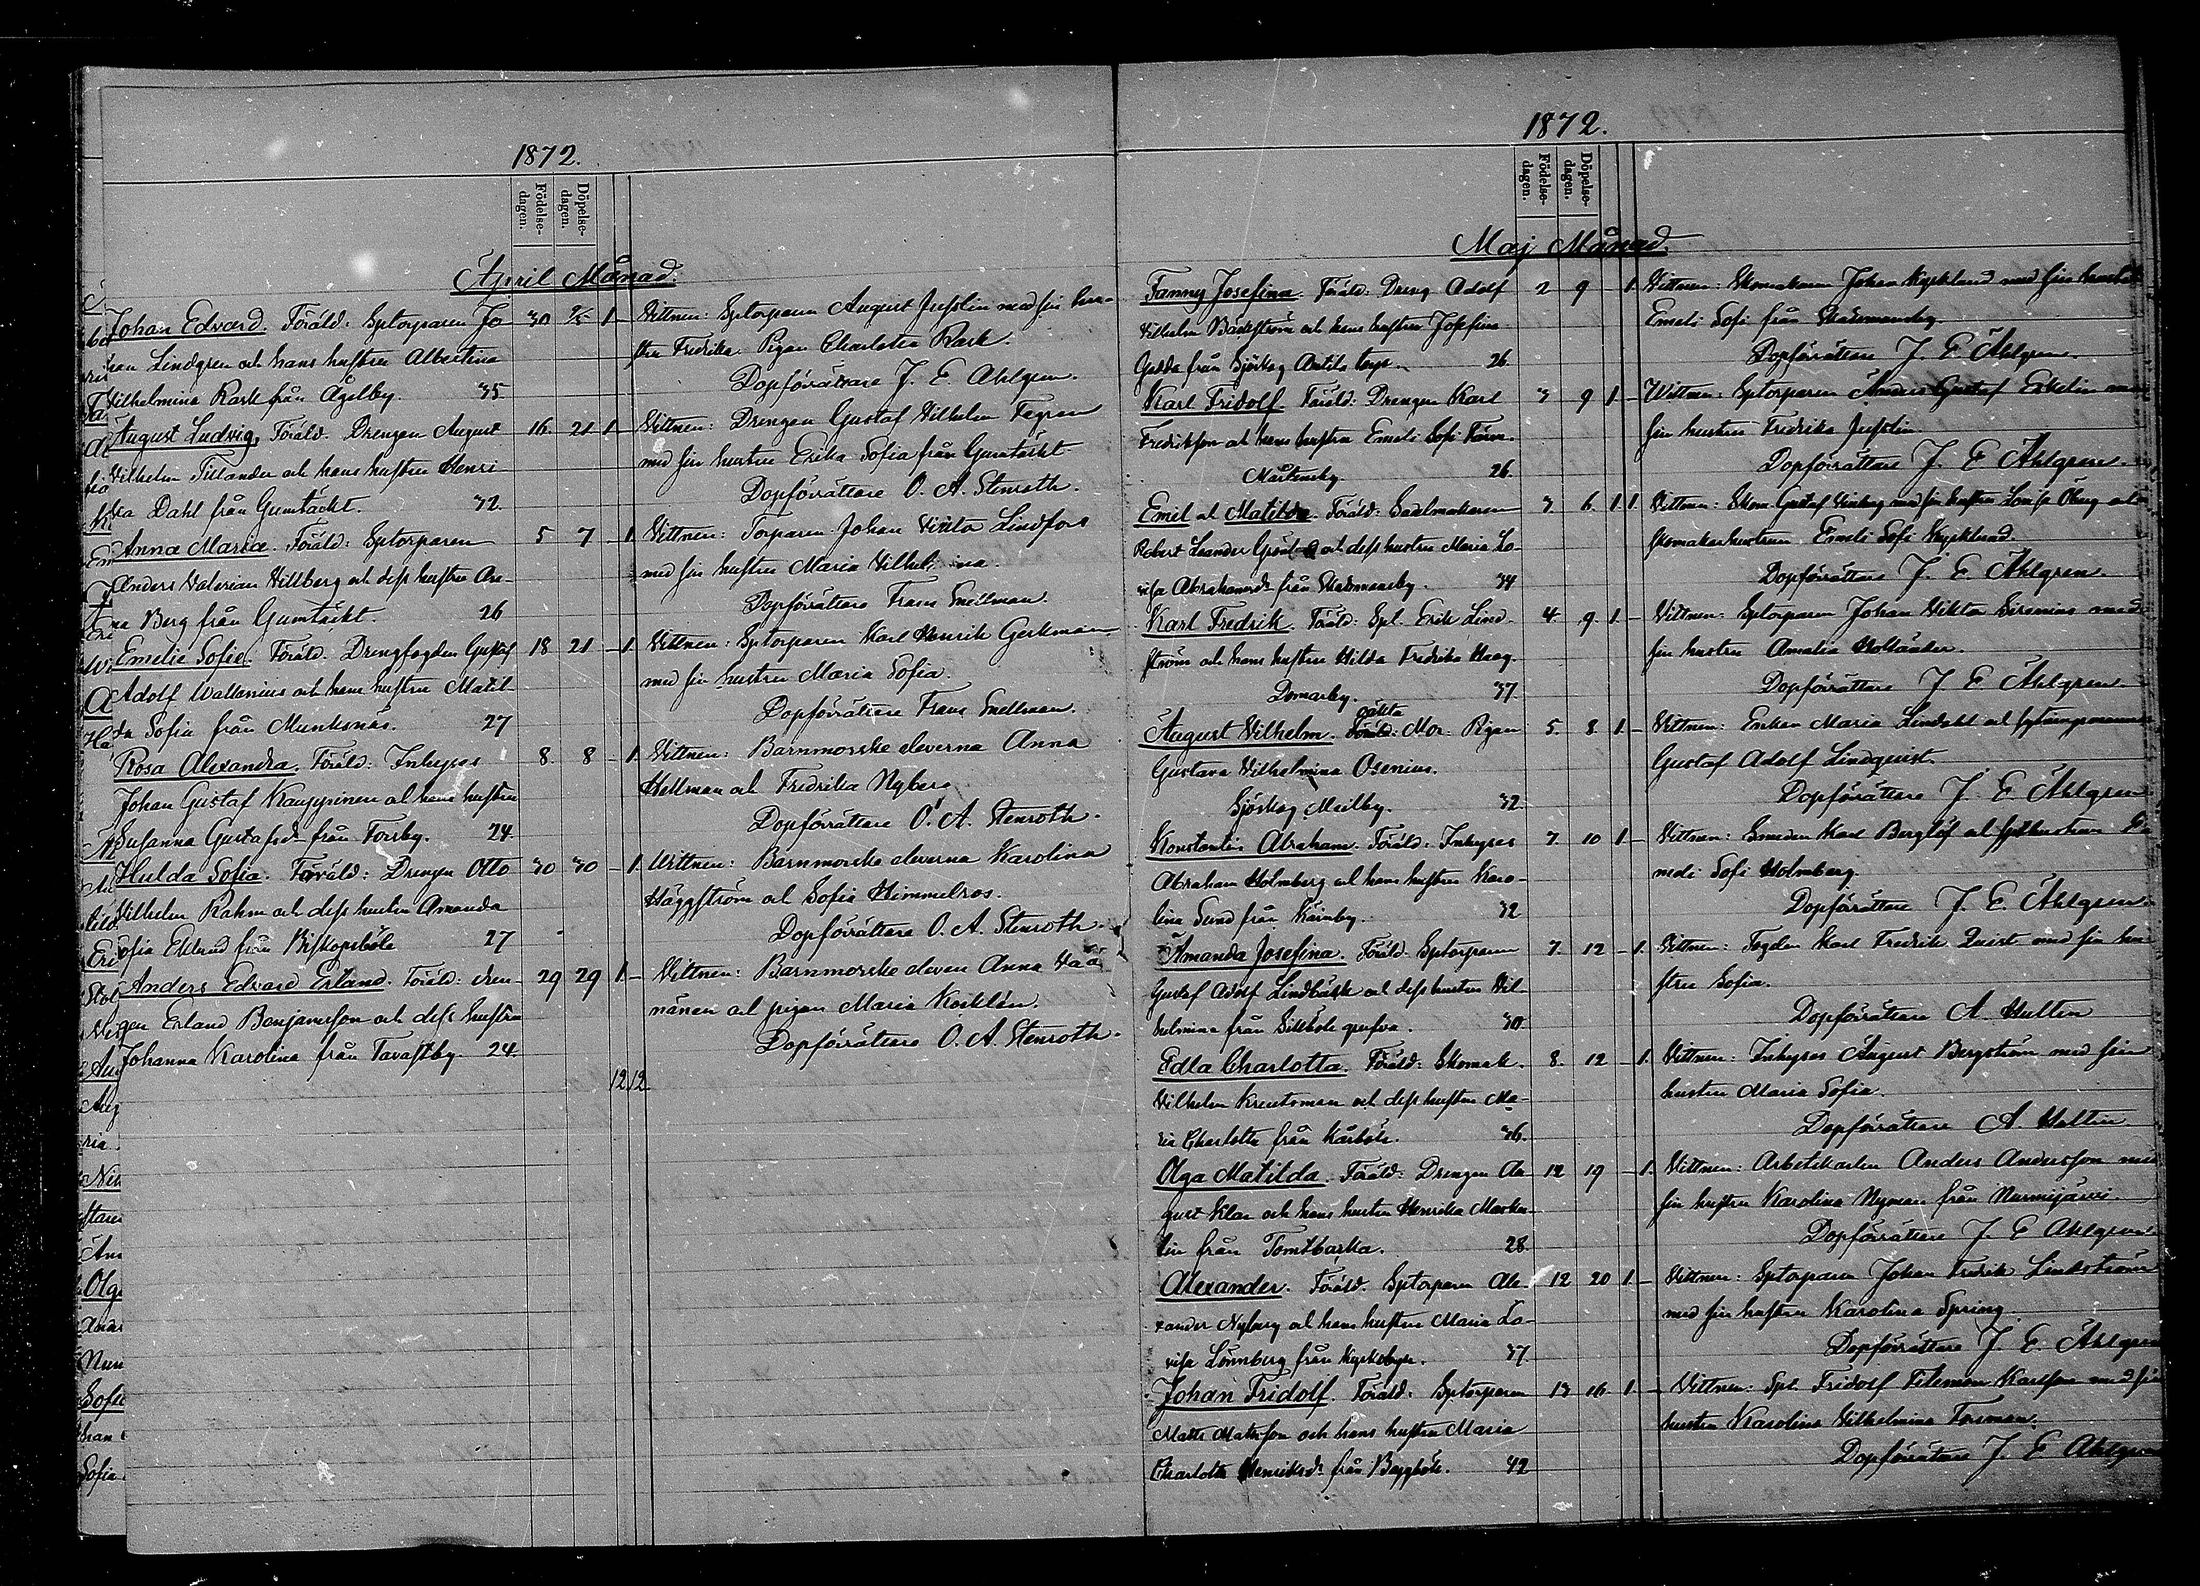 1872.
Födelse-dagen. Döpelse-dagen.
April Månad.
Johan Edvard. Föräld: Sptorparen Jo- 30 1 - Vittnen: Sptorparen August Jusslin med sin hu-
han Lindgren och hans hustru Albertina stru Fredrika. Pigan Charlotta Rask.
Vilhelmina Rask från Ågelby. 35 Dopförrättare J. E. Ahlgren.
August Ludvig, Föräld. Drengen August 16. 21 1 - Vittnen: Drengen Gustaf Vilhelm Fagren
Vilhelm Tillander och hans hustru Henri- med sin hustru Erika Sofia från Gumtäckt
ka Dahl från Gumtäckt. 32 Dopförrättare O. A. Stenroth.
Anna Maria. Föräld: Sptorparen 5 7 - 1 Vittnen: Torparen Johan Victor Lindfors
Anders Valerian Hillberg och dess hustru An- med sin hustru Maria Vilhelmina.
na Berg från Gumtäckt. 26 Dopförrättare Frans Snellman.
Emelie Sofie. Föräld. Drengfogden Gustaf 18 21 - 1. Vittnen: Sptorparen Karl Henrik Gerkman
Adolf Wallenius och hans hustru Matil- med sin hustru Maria Sofia.
da Sofia från Munksnäs. 27 Dopförrättare Frans Snellman.
Rosa Alexandra. Föräld: Inhyses 8. 8 - 1. Vittnen: Barnmorske eleverna Anna
Johan Gustaf Kauppinen och hans hustru Hellman och Fredrika Nyberg
Susanna Gustafsdr från Forsby. 24. Dopförrättare O. A. Stenroth.
Hulda Sofia. Föräld: Drengen Otto 30 30 - 1. Vittnen: Barnmorske eleverna Karolina
Vilhelm Rahm och dess hustru Amanda Häggström och Sofia Himmelros.
Sofia Eklund från Biskopsböle 27 Dopförrättare O. A. Stenroth.
Anders Edvard Erland. Föräld: dren- 29 29 1. - Vittnen: Barnmorske eleven Anna
gen Erland Benjamsson och dess hustru nänen och pigan Maria
Johanna Karolina från Tavastby. 24. Dopförrättare O. A. Stenroth.
12 12
1872.
Födelse-dagen. Döpelse-dagen.
Maj Månad.
Fanny Josefina. Föräld: Dreng Adolf 2 9 - 1. Vittnen: Skomakaren Johan Kyrklund med sin hustru
Vilhelm Bäckström och hans hustru Josefina Emeli Sofi från Skadamansby.
Gädda från Sjöskog Antils torp. 26 Dopförrättare J. E. Ahlgren.
Karl Fridolf. Föräld: Drengen Karl 3 9 1 - Wittnen: Sptorparen Anders Gustaf Ekholm med
Fredriksson och hans hustru Emeli Sofi sin hustru Fredrika Jusslin.
Mårtensby. 26. Dopförrättare J. E. Ahlgren.
Emil och Matilda. Föräld: Sadelmakaren 3 6 1 1. Vittnen: Skom Gustaf med sin hustru Lovisa Öberg och
Robert Leander och dess hustru Maria Lo- skomakarhustrun Emeli Sofi Kyrklund.
visa Abrahamsdr från Skadamansby. 34 Dopförrättare J. E. Ahlgren.
Karl Fredrik. Föräld: Spt. Erik Lind- 4. 9 1 - Vittnen: Sptorparen Johan Viktor Sirenius med
ström och hans hustru Hilda Fredrika Haag. sin hustru Amalia
Domarby. 37 Dopförrättare J E Ahlgren.
August Vilhelm. oäkta Mor. Pigan 5. 8 1 - Vittnen: Enkan Maria Lindahl och
Gustava Vilhelmina Osenius. Gustaf Adolf Lindquist.
Sjöskog Meilby. 32 Dopförrättare J. E. Ahlgren
Konstantin Abraham. Föräld: Inhyses 7. 10 1 - Vittnen: Smeden Karl Berglöf och
Abraham Holmberg och hans hustru Karo- Sofi Holmberg.
lina Sund från Kärrby. 32 Dopförrättare J. E. Ahlgren
Amanda Josefina. Föräld: Sptorparen 7. 12 - 1. Vittnen: Fogden Karl Fredrik Quist med sin hu-
Gustaf Adolf Lindbäck och dess hustru Vil- stru Sofia.
helmina från Sillböle grufva. 30. Dopförrättare A. Hultin
Edla Charlotta. Föräld: Skomak. 8. 12 - 1. Vittnen: Inhyses August Bergström med sin
Vilhelm Kreutsman och dess hustru Ma- hustru Maria Sofia.
ria Charlotta från Kårböle. 36. Dopförrättare A. Hultin
Olga Matilda. Föräld: Drengen Au- 12 19 - 1. Vittnen: Arbetskarlen Anders Andersson med
gust Klar och hans hustru Henrika sin hustru Karolina Nyman från Nurmijärvi.
lin från Tomtbacka. 28. Dopförrättare J. E. Ahlgren.
Alexander. Föräld. Sptorparen Ale- 12 20 1. - Vittnen: Sptorparen Johan Fredrik Lindström
xander Nyberg och hans hustru Maria Lo- med sin hustru Karolina Spring.
visa Lönnberg från Kyrkobyn. 37. Dopförrättare J. E. Ahlgren
Johan Fridolf. Föräld: Sptorparen 13 16. 1. - Vittnen: Spt. Fridolf Filemon Karlsson med sin
Matts Mattsson och hans hustru Maria hustru Karolina Vilhelmina Forsman.
Charlotta Henriksdr från Baggböle. 42 Dopförrättare J. E. Ahlgren